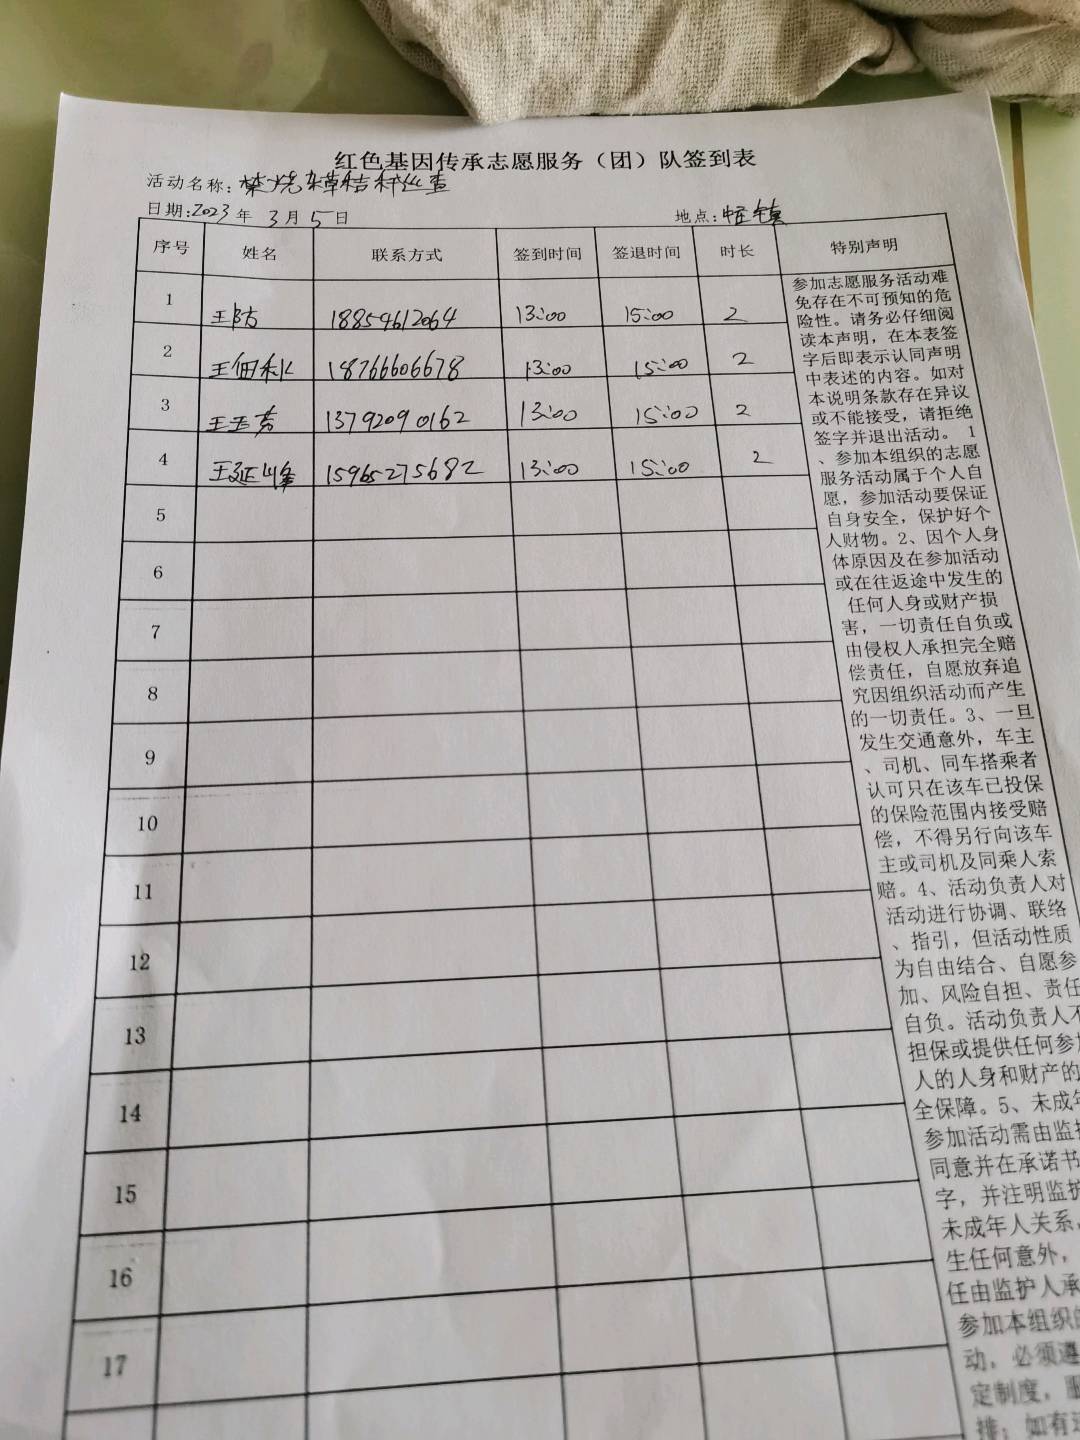 红色基因传承志愿服务（团）队签到表
活动名称：焚烧杂草秸秆巡查
日期:2023年 3月5日 地点:镇
序号 姓名 联系方式 签到时间 签退时间 时长 特别声明
1 王防 18854612064 13:00 15:00 2
2 王佃利 18766606678 13:00 15:00 2
3 王玉芳 13792090162 13:00 15:00 2
4 王延峰 15965275682 13:00 15:00 2
5
6
7
8
9
10
11
12
13
14
15
16
17
参加志愿服务活动难
免存在不可预知的危
险性。请务必仔细阅
读本声明，在本表签
字后即表示认同声明
中表述的内容。如对
本说明条款存在异议
或不能接受，请拒绝
签字并退出活动。 1
、参加本组织的志愿
服务活动属于个人自
愿，参加活动要保证
自身安全，保护好个
人财物。2、因个人身
体原因及在参加活动
或在往返途中发生的
任何人身或财产损
害，一切责任自负或
由侵权人承担完全赔
偿责任，自愿放弃追
究因组织活动而产生
的一切责任。3、一旦
发生交通意外，车主
、司机、同车搭乘者
认可只在该车已投保
的保险范围内接受赔
偿，不得另行向该车
主或司机及同乘人索
赔。4、活动负责人对
活动进行协调、联络
、指引，但活动性质
为自由结合、自愿参
加、风险自担、责任
自负。活动负责人不
担保或提供任何参加
人的人身和财产的
全保障。5、未成年
参加活动需由监护
同意并在承诺书
字，并注明监护
未成年人关系，
生任何意外，
任由监护人承
参加本组织的
动，必须遵
定制度，服
排；如有